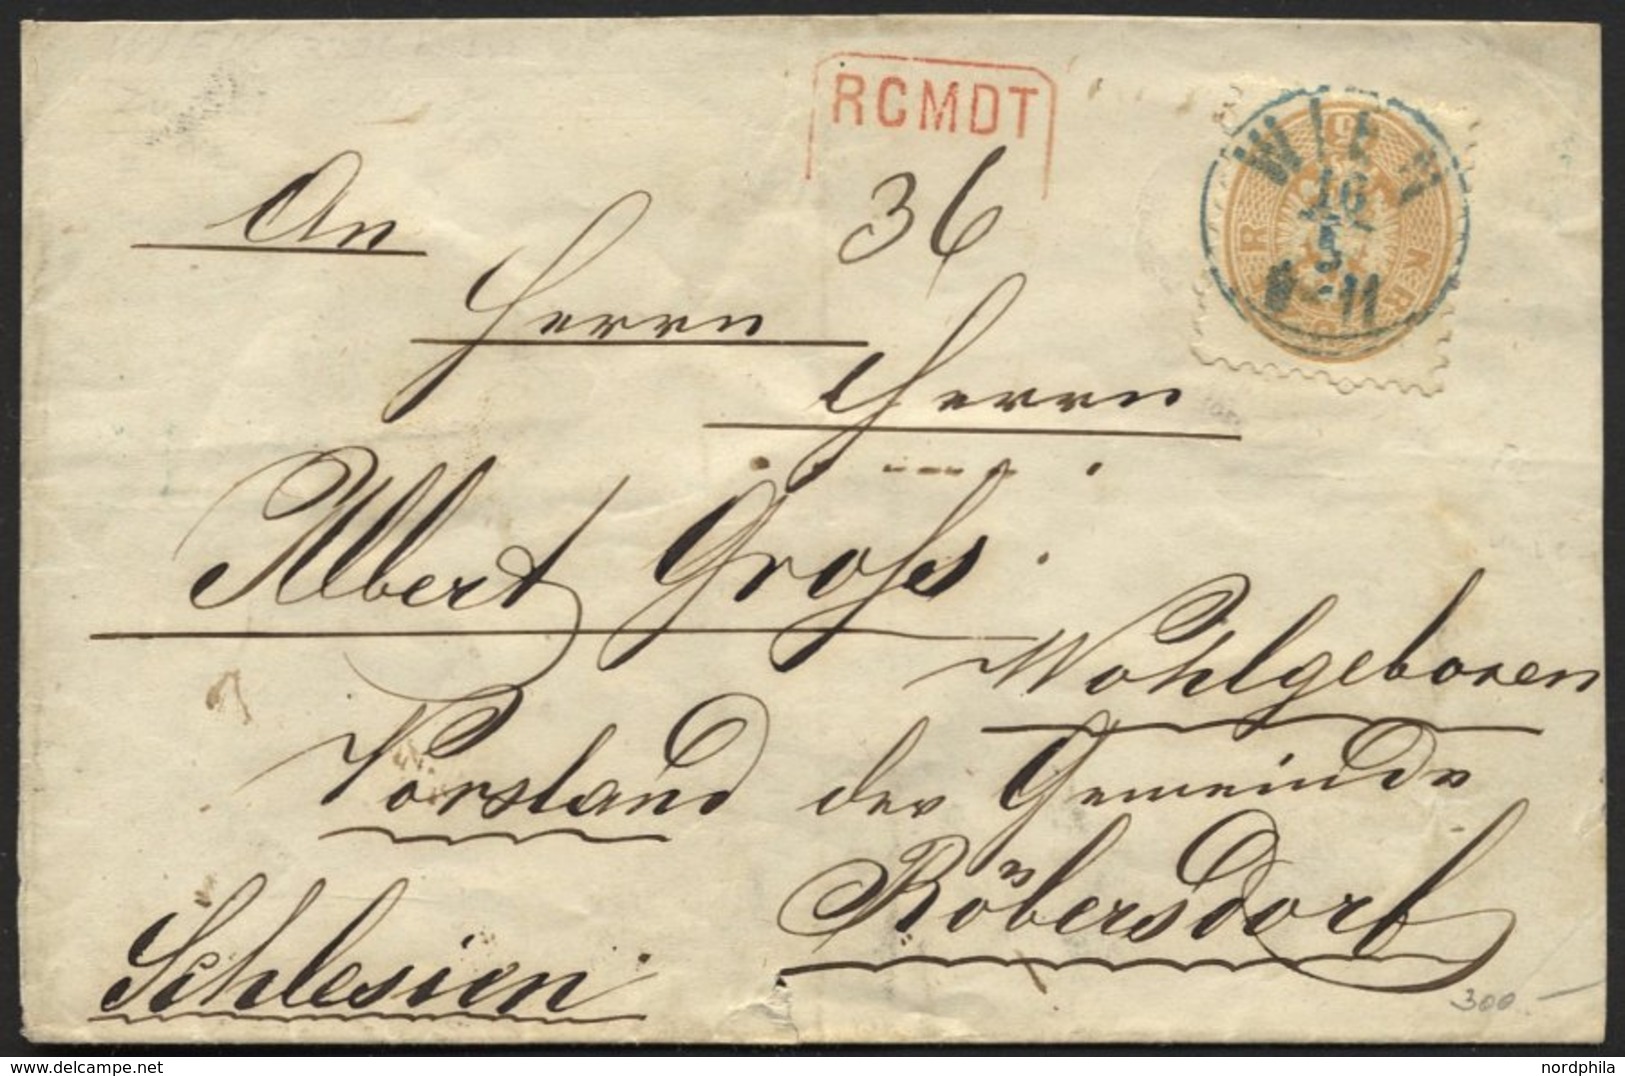 RCMDT
36
WIEN
16
5
-11
15
KR
An
Herrn
Herrn
Albert Groß.
Wohlgeboren
Vorstand der Gemeinde
Röbersdorf
Schlesien.
300.-
www.delcampe.net
nordphila